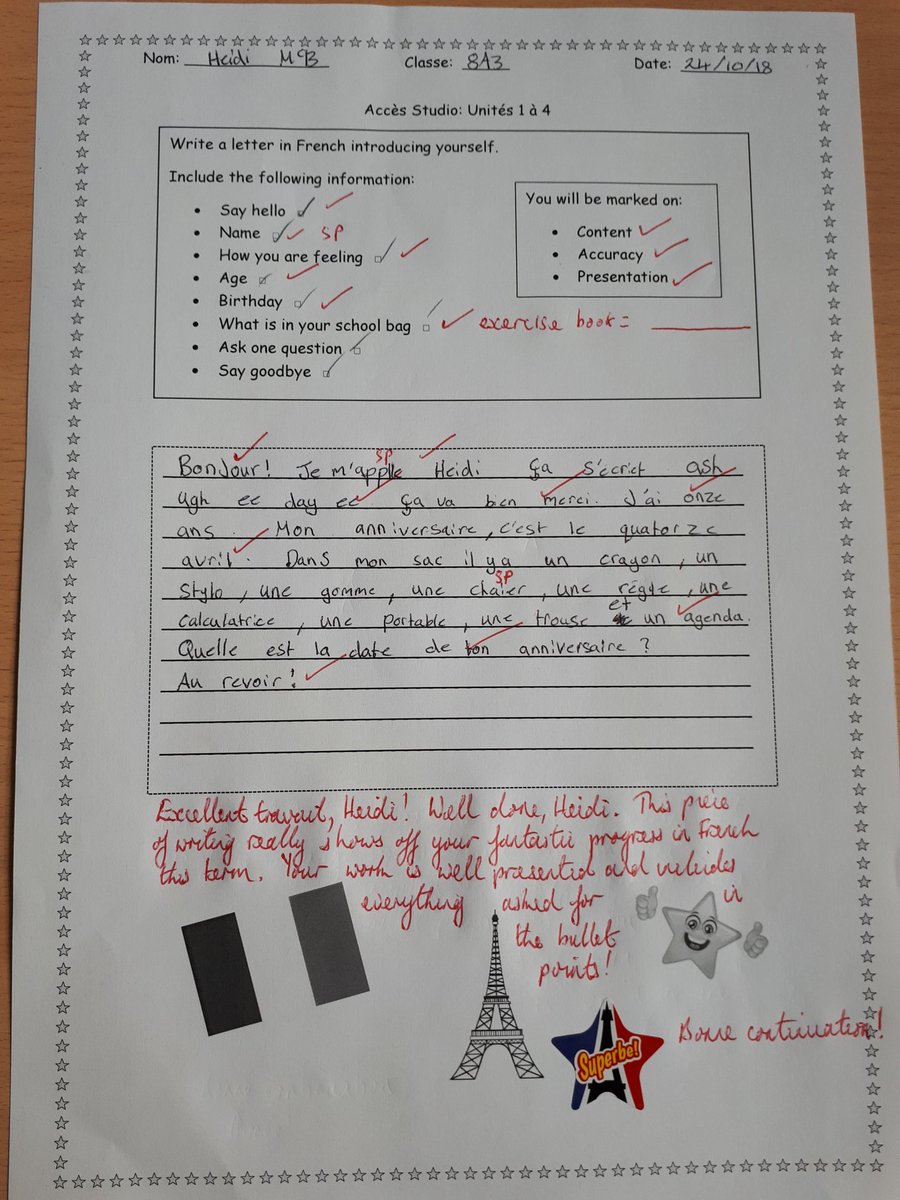 Nom: Heidi McB Classe: 8A3 Date: 24/10/18
Accès Studio: Unités 1 à 4
Write a letter in French introducing yourself.
Include the following information:
• Say hello
• Name SP
• How you are feeling
• Age
• Birthday
• What is in your school bag exercise book =
• Ask one question
• Say goodbye
You will be marked on:
• Content
• Accuracy
• Presentation
SP
Bonjour! Je m'applle Heidi Ça s'écriet ash
ugh ee day ee Ça va bien merci. J'ai onze
ans. Mon anniversaire, c'est le quatorze
avril. Dans mon sac il y a un crayon, un
SP
stylo, une gomme, une chaier, une règle, une
calculatrice, une portable, une trousse et un agenda.
Quelle est la date de ton anniversaire?
Au revoir!
Excellent travail, Heidi! Well done, Heidi. This piece
of writing really shows off your fantastic progress in French
this term. Your work is well presented and includes
everything asked for in
the bullet
points!
Superbe!
Bonne continuation!